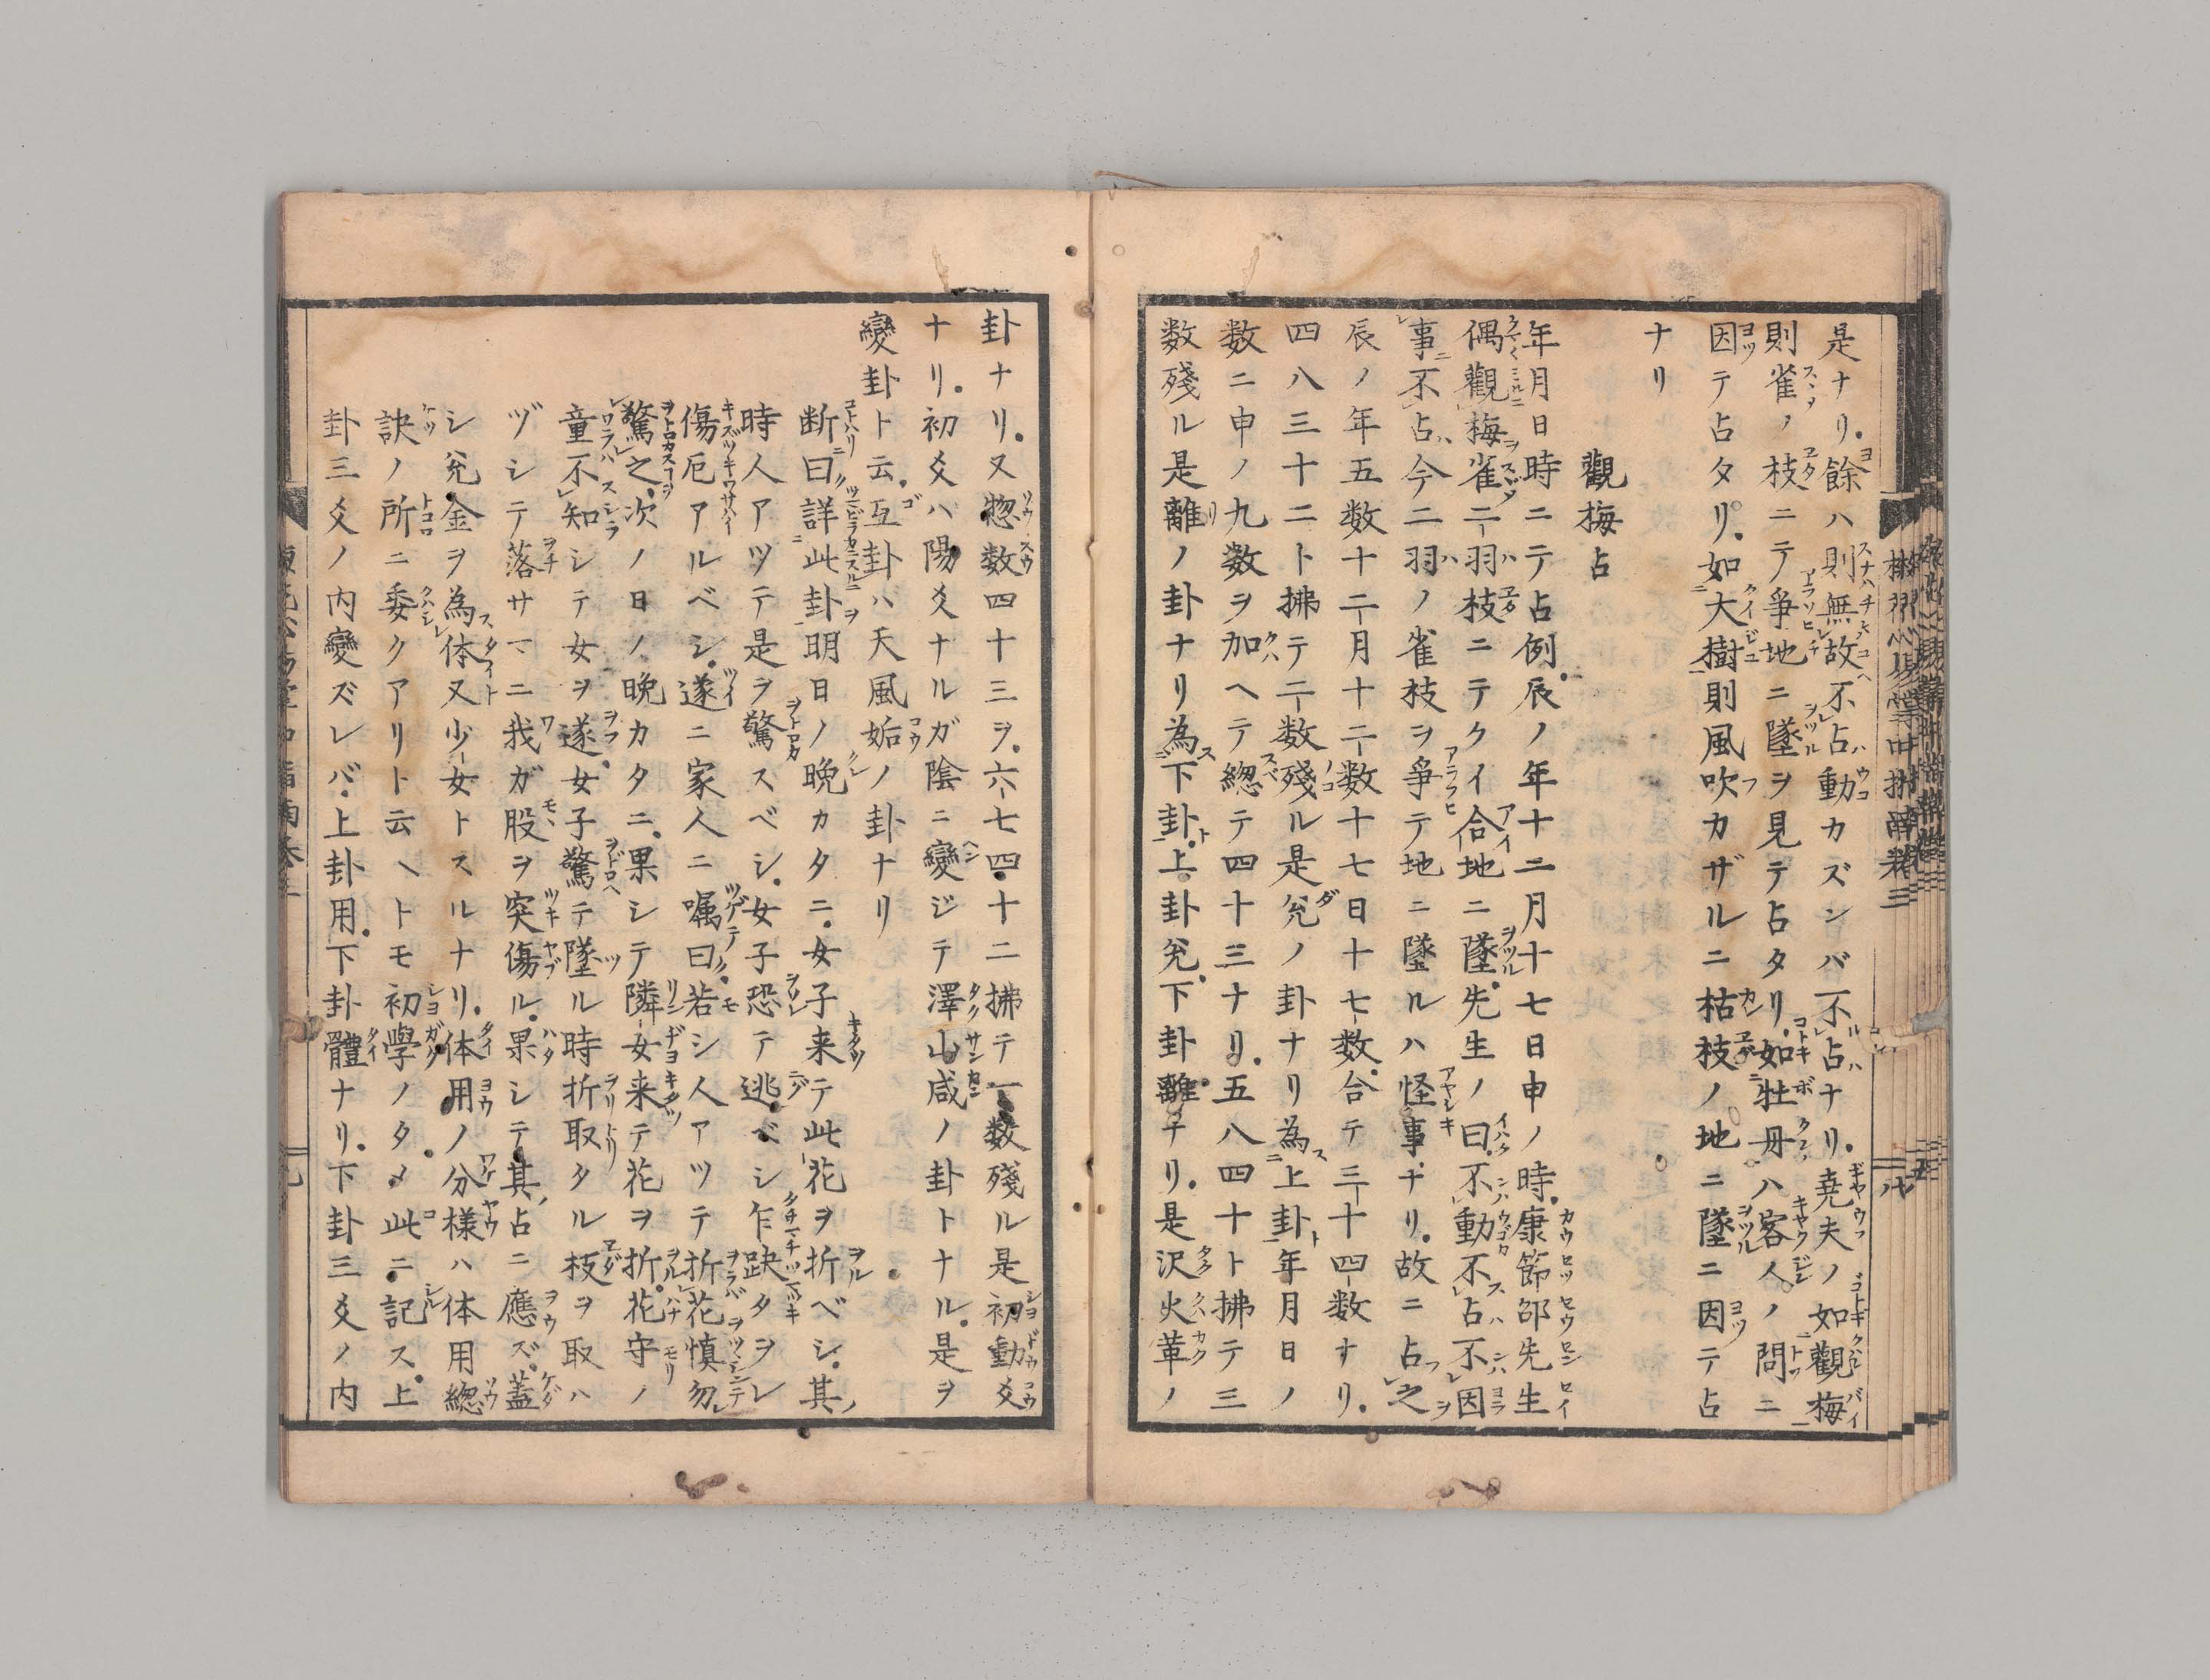 是ナリ。餘ハ則無故不占動カズンバ不占ナリ。堯夫ノ如觀梅
則雀ノ枝ニテ爭地ニ墜ヲ見テ占タリ。如牡丹ハ客人ノ問ニ
因テ占タリ。如大樹則風吹カザルニ枯枝ノ地ニ墜ニ因テ占
ナリ
觀梅占
年月日時ニテ占例。辰ノ年十二月十七日申ノ時。康節邵先生
偶觀梅雀二羽枝ニテクイ合地ニ墜。先生ノ曰。不動不占不因
事不占今二羽ノ雀枝ヲ爭テ地ニ墜ルハ怪事ナリ。故ニ占之
辰ノ年五数十二月十二数十七日十七数。合テ三十四数ナリ。
四八三十二ト拂テ二数殘ル是兌ノ卦ナリ為上卦年月日ノ
数ニ申ノ九数ヲ加ヘテ總テ四十三ナリ。五八四十ト拂テ三
数殘ル是離ノ卦ナリ為下卦。上卦兌。下卦離ナリ。是沢火革ノ
卦ナリ。又惣数四十三ヲ。六七四十二拂テ一数殘ル是初動爻
ナリ。初爻ハ陽爻ナルガ陰ニ變ジテ澤山咸ノ卦トナル。是ヲ
變卦ト云。互卦ハ天風姤ノ卦ナリ
断曰詳此卦明日ノ晩カタニ。女子来テ此花ヲ折ベシ。其
時人アツテ是ヲ驚スベシ。女子恐テ逃ベシ乍趺タヲレ
傷厄アルベシ。遂ニ家人ニ嘱曰。若シ人アツテ折花慎勿
驚之。次ノ日ノ晩カタニ。果シテ隣女来テ花ヲ折。花守ノ
童不知シテ女ヲ遂。女子驚テ墜ル時折取タル枝ヲ取ハ
ヅシテ落サマニ我ガ股ヲ突傷ル。果シテ其占ニ應ズ。蓋
シ兌金ヲ為体又少女トスルナリ。体用ノ分様ハ体用總
訣ノ所ニ委クアリト云ヘトモ初學ノタメ此ニ記ス。上
卦三爻ノ内變ズレバ上卦用。下卦體ナリ。下卦三爻ノ内